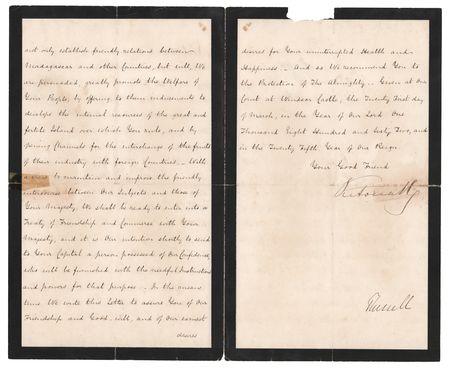 not only establish friendly relations between
Madagascar and other Countries, but will, We
are persuaded, greatly promote the Welfare of
Your People, by offering to them inducements to
develope the internal resources of the great and
fertile Island over which You reign, and by
opening Channels for the interchange of the fruits
of their industry with foreign Countries. – With
a view to maintain and improve the friendly
intercourse between Our Subjects and those of
Your Majesty, We shall be ready to enter into a
Treaty of Friendship and Commerce with Your
Majesty, and it is Our intention shortly to send
to Your Capital a person possessed of Our Confidence,
who will be furnished with the needful Instructions
and powers for that purpose. – In the mean
time We write this Letter to assure You of Our
Friendship and Good will, and of Our earnest
desires
desires for Your uninterrupted Health and
Happiness. – And so We recommend You to
the Protection of The Almighty. – Given at Our
Court at Windsor Castle, the Twenty First day
of March, in the Year of Our Lord One
Thousand Eight Hundred and Sixty Two, and
in the Twenty Fifth Year of Our Reign.
Your Good Friend
Victoria R
Russell